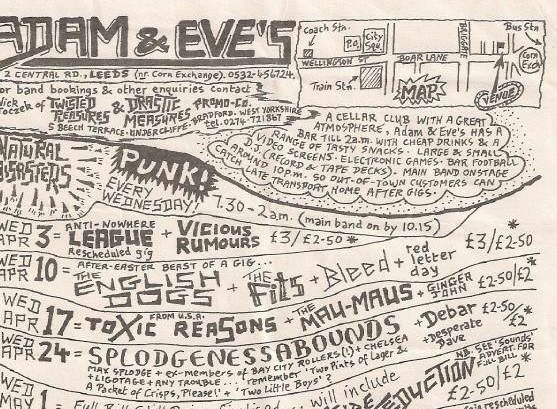 ADAM & EVE'S
2 CENTRAL RD., LEEDS (nr. Corn Exchange). 0532-456724.
or band bookings & other enquiries contact
Nick Toczek of TWISTED TREASURES & DRASTIC MEASURES PROMO-CO.
5 BEECH TERRACE · UNDERCLIFFE · BRADFORD. WEST YORKSHIRE
tel. 0274. 721867
Coach Stn.
P.O.
City Squ.
WELLINGTON ST
BOAR LANE
BRIGGATE
Bus Stn
Corn Exc
Train Stn.
MAP
VENUE
A CELLAR CLUB WITH A GREAT
ATMOSPHERE, Adam & Eve's HAS A
BAR TILL 2a.m. WITH CHEAP DRINKS & A
RANGE OF TASTY SNACKS · LARGE & SMALL
VIDEO SCREENS · ELECTRONIC GAMES · BAR FOOTBALL
D.J. (RECORD & TAPE DECKS). MAIN BAND ONSTAGE
around 10p.m. SO OUT-OF-TOWN CUSTOMERS CAN
CATCH LATE TRANSPORT HOME AFTER GIGS.
NATURAL DISASTERS
PUNK!
EVERY WEDNESDAY!
7.30 - 2a.m. (main band on by 10.15)
WED APR 3 = ANTI-NOWHERE LEAGUE + VICIOUS RUMOURS £3/£2·50 *
Rescheduled gig
WED APR 10 = AFTER-EASTER BEAST OF A GIG...
THE ENGLISH DOGS + THE Fits + Bleed + red letter day £3/£2·50 *
WED APR 17 = FROM U.S.A. TOXIC REASONS + THE MAU-MAUS + GINGER JOHN £2·50/£2 *
WED APR 24 = SPLODGENESSABOUNDS + Debar + Desperate Dave £2·50/£2 *
MAX SPLODGE + ex-members of BAY CITY ROLLERS(!) + CHELSEA
+ LIGOTAGE + ANY TROUBLE... remember 'Two Pints of Lager &
A Packet of Crisps, Please!' + 'Two Little Boys'?
NB. SEE 'Sounds' ADVERT. FOR FULL BILL *
WED MAY 1 = will include
£2·50/£2
rescheduled